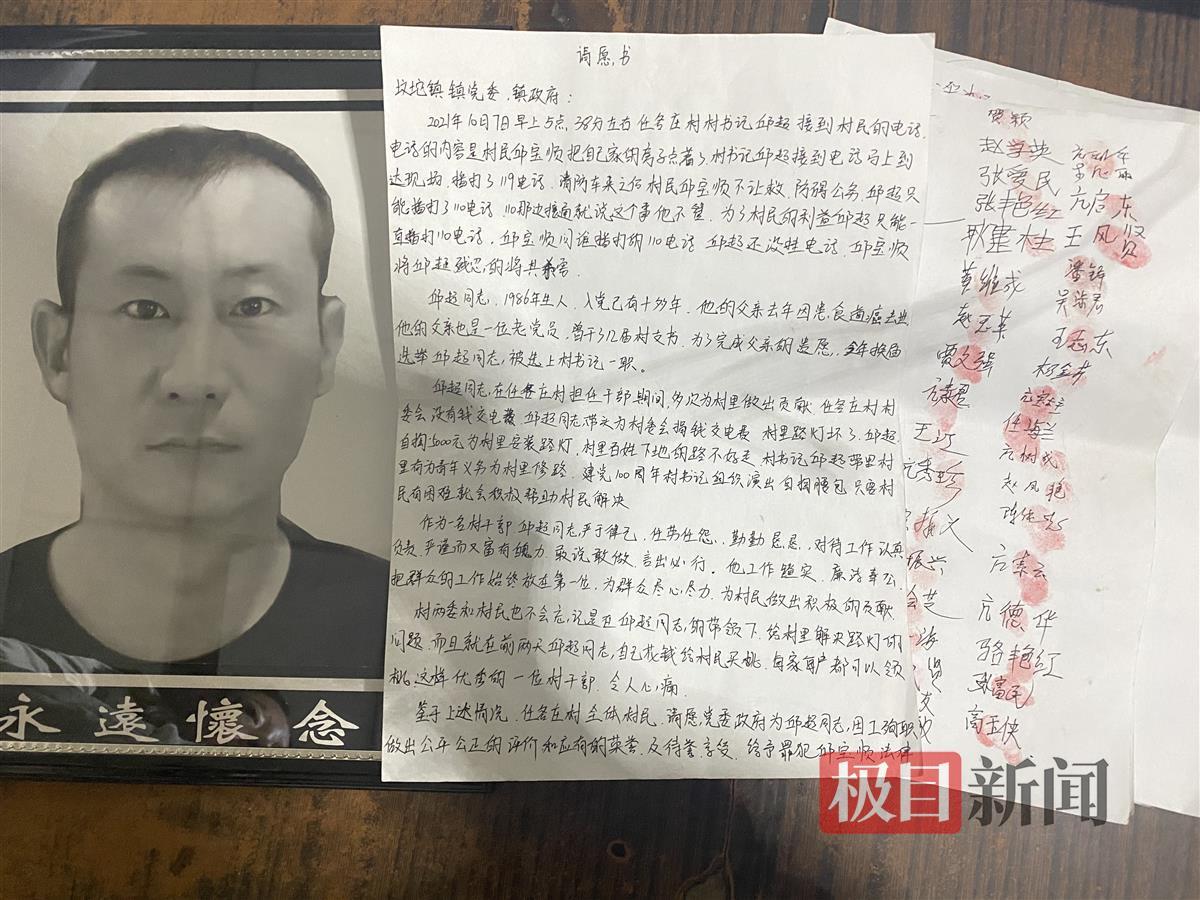 请愿书
坟坨镇镇党委、镇政府:
2021年10月7日早上5点38分左右任各庄村村书记邱超接到村民的电话.
电话的内容是村民邱宝顺把自己家的房子点着了村书记邱超接到电话马上到
达现场.拨打了119电话.消防车来之后村民邱宝顺不让救.防碍公务.邱超只
能播打了110电话.110那边接通就说这个事他不管.为了村民的利益邱超只能一
直播打110电话.邱宝顺问谁播打的110电话 邱超还没挂电话.邱宝顺
将邱超残忍的将其杀害.
邱超同志,1986年生人.入党已有十多年.他的父亲去年因患食道癌去世
他的父亲也是一位老党员.曾干3亿届村支书.为了完成父亲的遗愿.今年换届
选举邱超同志,被选上村书记一职.
邱超同志,在任各庄村担任干部期间,多次为村里做出贡献 任各庄村村
委会没有钱交电费 邱超同志带头为村委会捐钱交电费 村里路灯坏了.邱超
自掏5000元为村里安装路灯.村里百姓下地的路不好走 村书记邱超带里村
里有为青年义务为村里修路.建党100周年村书记组织演出自掏腰包 只要村
民有困难就会积极帮助村民解决
作为一名村干部 邱超同志,严于律己、任劳任怨、勤勤恳恳.对待工作认真
负责.严谨而又富有魄力.敢说敢做、言出必行。他工作踏实、廉洁奉公.
把群众的工作始终放在第一位.为群众尽心尽力.为村民做出积极的贡献
村两委和村民也不会忘记是在邱超同志,的带领下.给村里解决路灯的
问题.而且就在前两天邱超同志,自己花钱给村民买桃.每家每户都可以领
桃.这样优秀的一位村干部.令人心痛.
鉴于上述情况.任各庄村全体村民.请愿党委政府为邱超同志,因工殉职
做出公平公正的评价和应有的荣誉.及待誉享受.给予罪犯邱宝顺法律
贾颖
赵学英
张爱民
张丰色红 亢启东
耿建柱 王风贤
黄维成 潘锦
贾文强 王志东
王江
任海兰
亢秀珍 亢树成
赵风艳
振兴
亢素云
亢德华
骆艳红
张富
高玉侠
永遠懷念
极目新闻